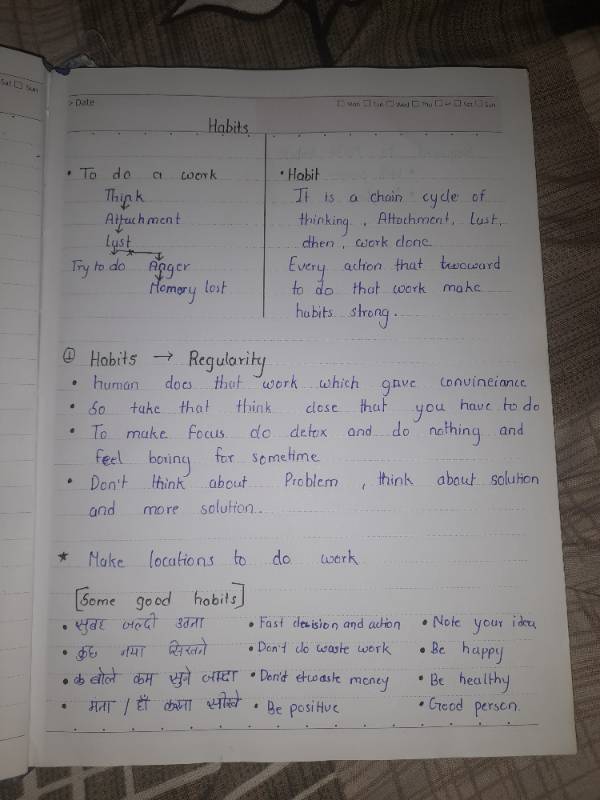 Sat Sun
> Date
Mon Tue Wed Thu Fri Sat Sun
Habits
• To do a work
Think
Attachment
Lust
Try to do Anger
Memory lost
• Habit
It is a chain cycle of
thinking, Attachment, Lust,
dhen, work done
Every action that twoward
to do that work make
habits strong.
① Habits → Regularity
• human does that work which gave convineiance
• So take that think close that you have to do
• To make focus do detox and do nothing and
feel boring for sometime
• Don't think about Problem, think about solution
and more solution.
* Make locations to do work
[Some good habits]
• सुबह जल्दी उठना • Fast decision and action • Note your idea
• कुछ नया सिखने • Don't do waste work • Be happy
• बोले कम सुने जादा • Don't waste money • Be healthy
• मना / हाँ करना सीखे • Be positive • Good person.